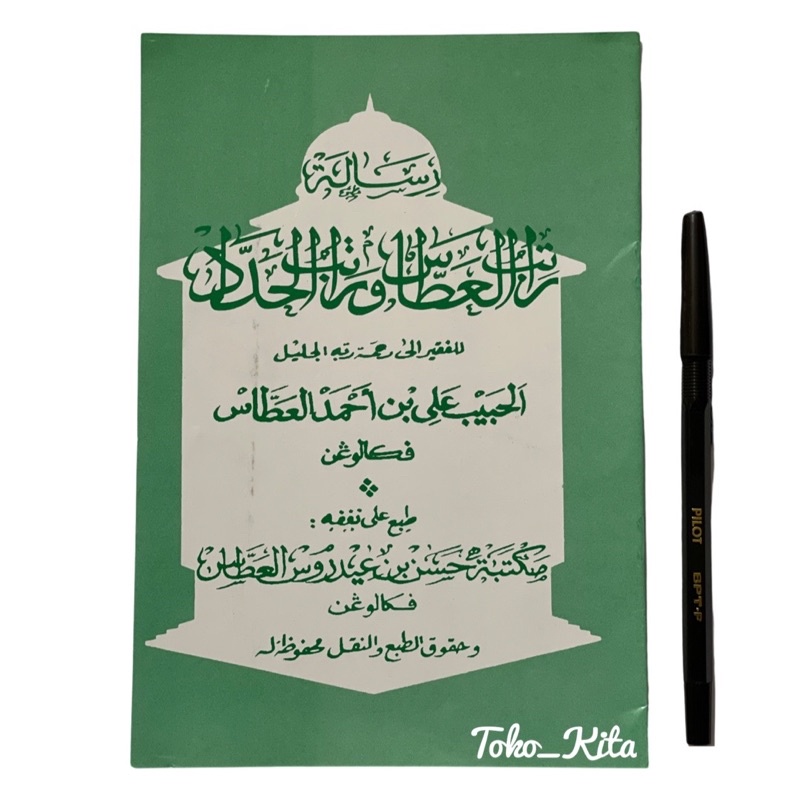 رسالة
راتب العطاس وراتب الحداد
للفقير الى رحمة ربه الجليل
الحبيب علي بن أحمد العطاس
فكالوڠن
طبع على نفقه :
مكتبة حسن بن عيدروس العطاس
فكالوڠن
وحقوق الطبع والنقل محفوظة له
PILOT BPT-P
Toko_Kita